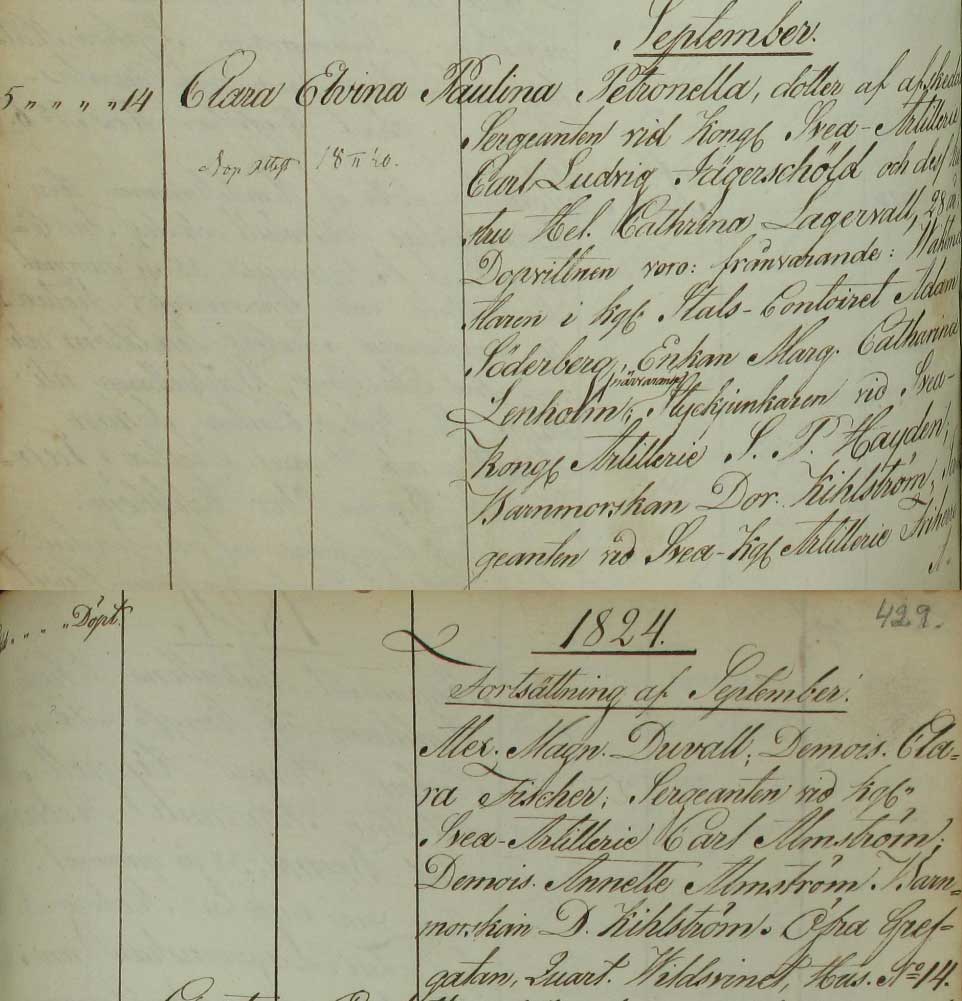 September.
5 " " " " 14 Clara Elvina Paulina Petronella, dotter af afskeda
Sergeanten vid Kongl Svea-Artillerie
Carl Ludvig Jägerschöld och dess
18 11/ 20.
stru Hel. Cathrina Lagervall, 28
Dopvittnen voro: frånvarande:
staren i kgl. Stats-Contoiret Adam
Söderberg, Enkan Marg. Catharina
närvarande
Lenholm; Styckjunkaren vid Svea-
Kongl Artillerie S. P. Hayden;
Barnmorskan Dor. Kihlström;
geanten vid Svea-Kgl Artillerie
" " " Döpt.
1824.
429.
Fortsättning af September.
Alex. Magn. Duvall; Demois. Cla=
ra Fischer; Sergeanten vid Kgl"
Svea-Artillerie Carl Almström;
Demois. Annette Almström Barn=
morskan D. Kihlström. Öfra Gref=
gatan, Quart. Vildsvinet, Hus. No 14.